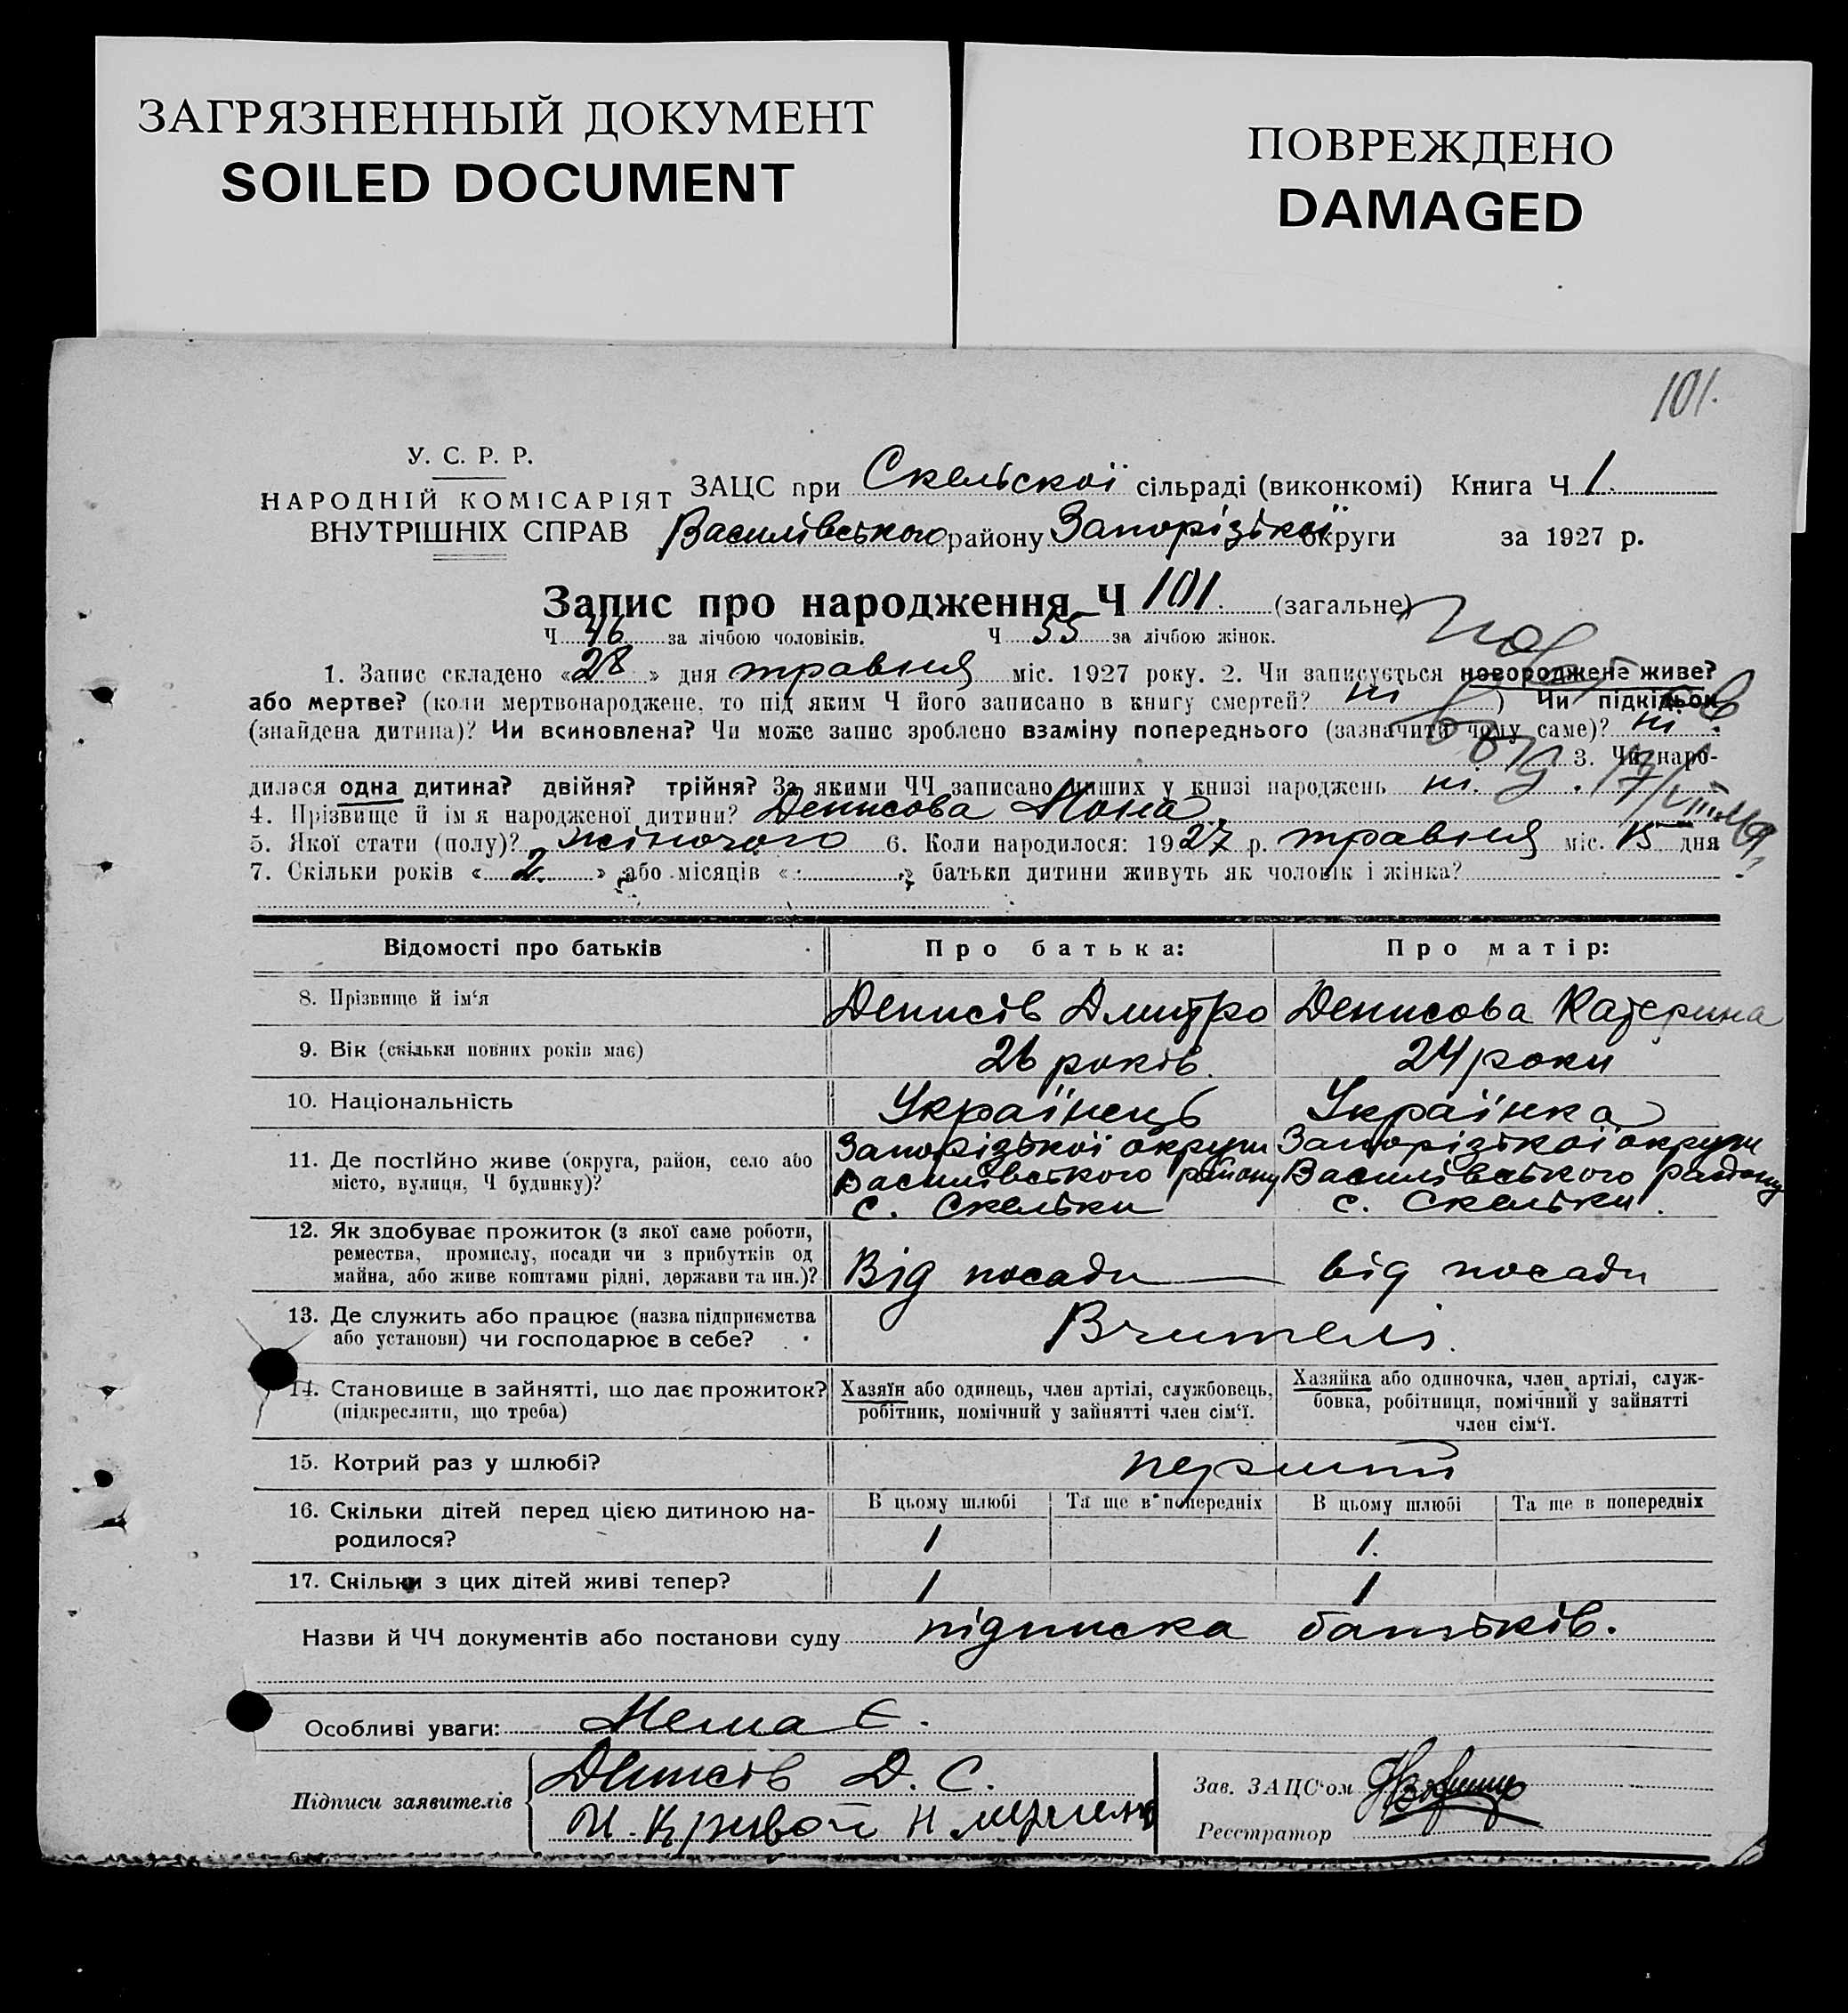 ЗАГРЯЗНЕННЫЙ ДОКУМЕНТ
SOILED DOCUMENT
ПОВРЕЖДЕНО
DAMAGED
101.
У. С. Р. Р.
НАРОДНІЙ КОМІСАРІЯТ
ВНУТРІШНІХ СПРАВ
ЗАЦС при Скельської сільраді (виконкомі) Книга Ч 1.
Василівського району Запорізької округи за 1927 р.
Запис про народження Ч 101. (загальне)
Ч 46 за лічбою чоловіків. Ч 55 за лічбою жінок.
1. Запис складено «28» дня травня міс. 1927 року. 2. Чи записується новороджене живе?
або мертве? (коли мертвонароджене, то під яким Ч його записано в книгу смертей? ні ) Чи підкідьок
(знайдена дитина)? Чи всиновлена? Чи може запис зроблено взаміну попереднього (зазначити чому саме)? ні.
3. Чи наро-
дилася одна дитина? двійня? трійня? За якими ЧЧ записано инших у книзі народжень ні.
4. Прізвище й ім'я народженої дитини? Денисова Нона
5. Якої стати (полу)? жіночого 6. Коли народилося: 1927 р. травня міс. 15 дня
7. Скільки років «2» або місяців « » батьки дитини живуть як чоловік і жінка?
Відомості про батьків Про батька: Про матір:
8. Прізвище й ім'я Денисів Дмитро Денисова Катерина
9. Вік (скільки повних років має) 26 років. 24 роки
10. Національність Українець Українка
11. Де постійно живе (округа, район, село або місто, вулиця, Ч будинку)?
Запорізької округи Василівського району с. Скельки
Запорізької округи Василівського району с. Скельки.
12. Як здобуває прожиток (з якої саме роботи,
ремества, промислу, посади чи з прибутків од
майна, або живе коштами рідні, держави та ин.)? Від посади від посади
13. Де служить або працює (назва підприємства
або установи) чи господарює в себе? Вчителі.
14. Становище в зайнятті, що дає прожиток?
(підкреслити, що треба)
Хазяїн або одинець, член артілі, службовець,
робітник, помічний у зайнятті член сім'ї.
Хазяйка або одиночка, член артілі, служ-
бовка, робітниця, помічний у зайнятті
член сім'ї.
15. Котрий раз у шлюбі? перший
16. Скільки дітей перед цією дитиною на-
родилося?
В цьому шлюбі Та ще в попередніх В цьому шлюбі Та ще в попередніх
1 1.
17. Скільки з цих дітей живі тепер? 1 1
Назви й ЧЧ документів або постанови суду підписка батьків.
Особливі уваги: Немає.
Підписи заявителів Денисів Д. С.
Кривой
Зав. ЗАЦС'ом
Реєстратор